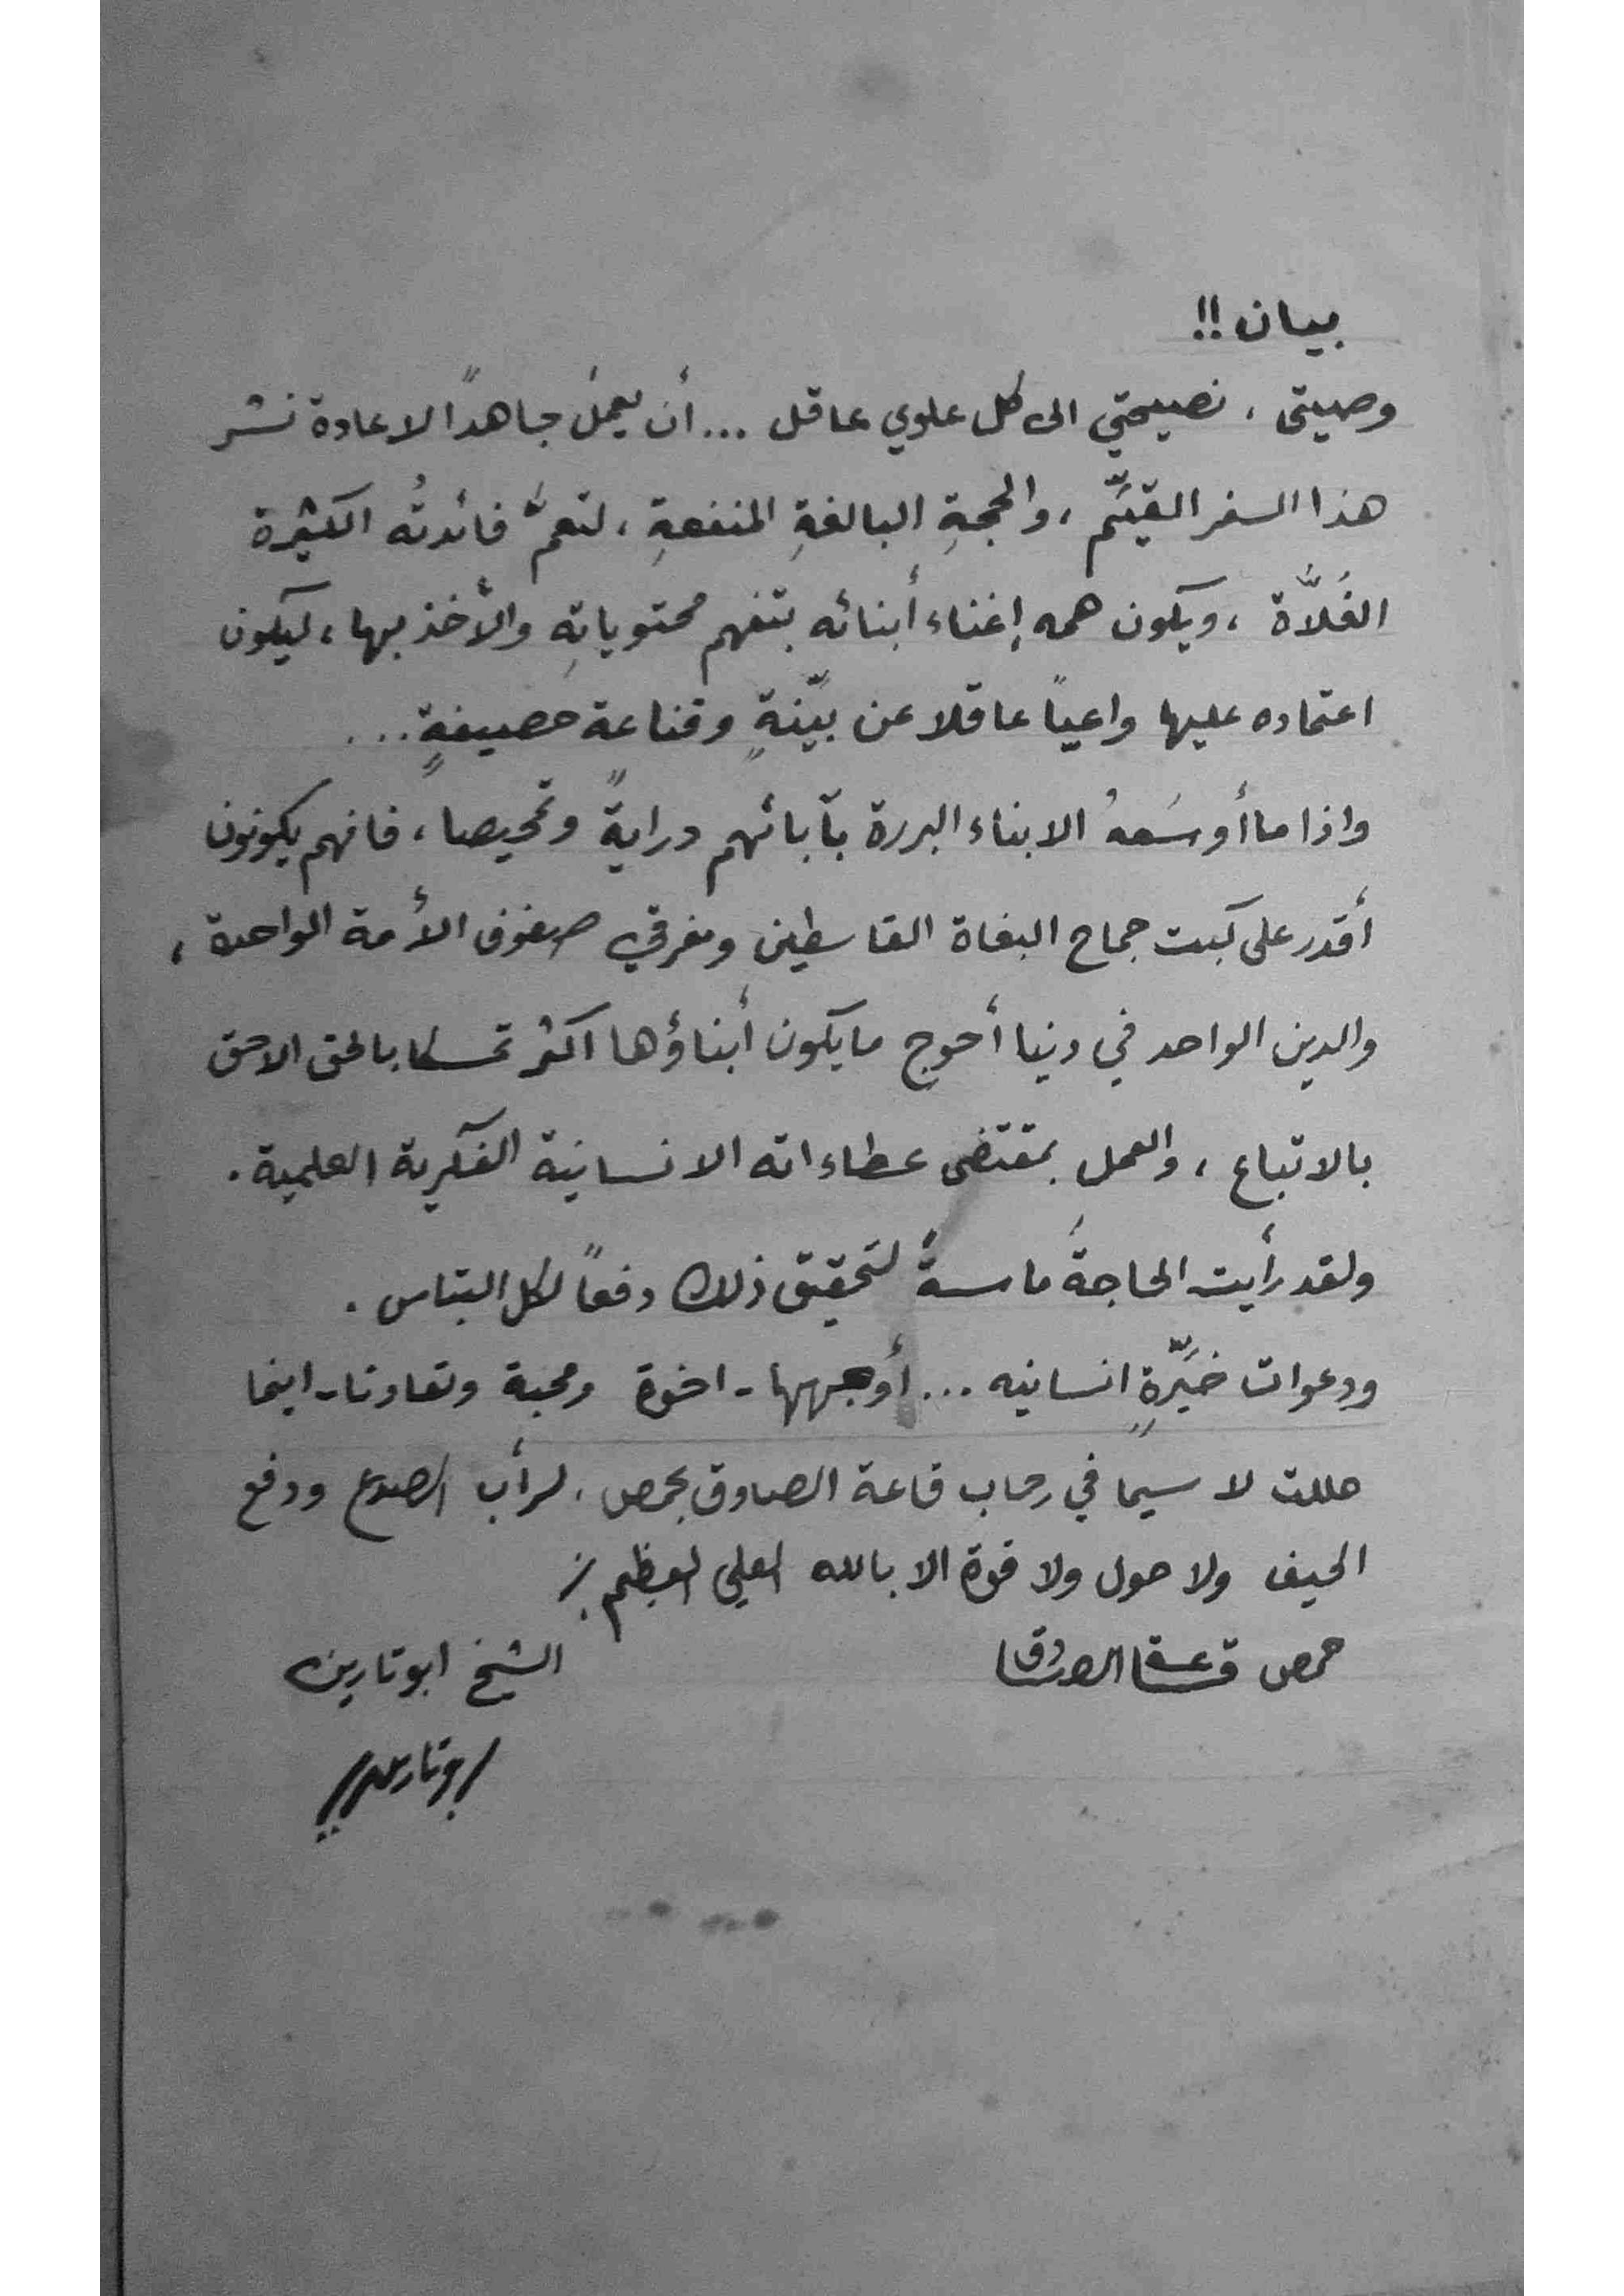 بيان !!
وصيتي ، نصيحتي الى كل علوي عاقل ... أن يعملَ جاهداً لاعادة نشر
هذا السفر القيَّم ، والحجةِ البالغةِ المنفعةِ ، لتعمَّ فائدتُه الكثيرة
الغُلاَّة ، ويكون همه إغناء أبنائه بتفهم محتوياتِه والأخذ بها ، ليكون
اعتماده عليها واعياً عاقلا عن بيّنةٍ وقناعة حصيفةٍ ...
واذا ما الابناء البررة بآبائهم درايةً وتمحيصا ، فانهم يكونون
أقدر على كبت جماح البغاة القاسطين ومفرقي صفوف الأمة الواحدة ،
والدين الواحد في دنيا أحوج ما يكون أبناؤها اكثر تمسكا بالحق الاحق
بالاتباع ، والعمل بمقتضى عطاءاته الانسانية الفكرية العلمية .
ولقد رأيت الحاجةَ ماسةً لتحقيق ذلك دفعاً لكل التباس .
ودعوات خيَّرةٍ انسانيه ... أوجهها - اخوة ومحبة وتعاونا - اينما
حللت لا سيما في رحاب قاعة الصادق بحمص ، لرأب الصدع ودفع
الحيف ولا حول ولا قوة الا بالله العلي العظيم
حمص قاعة الصادق
الشيخ ابو تارين